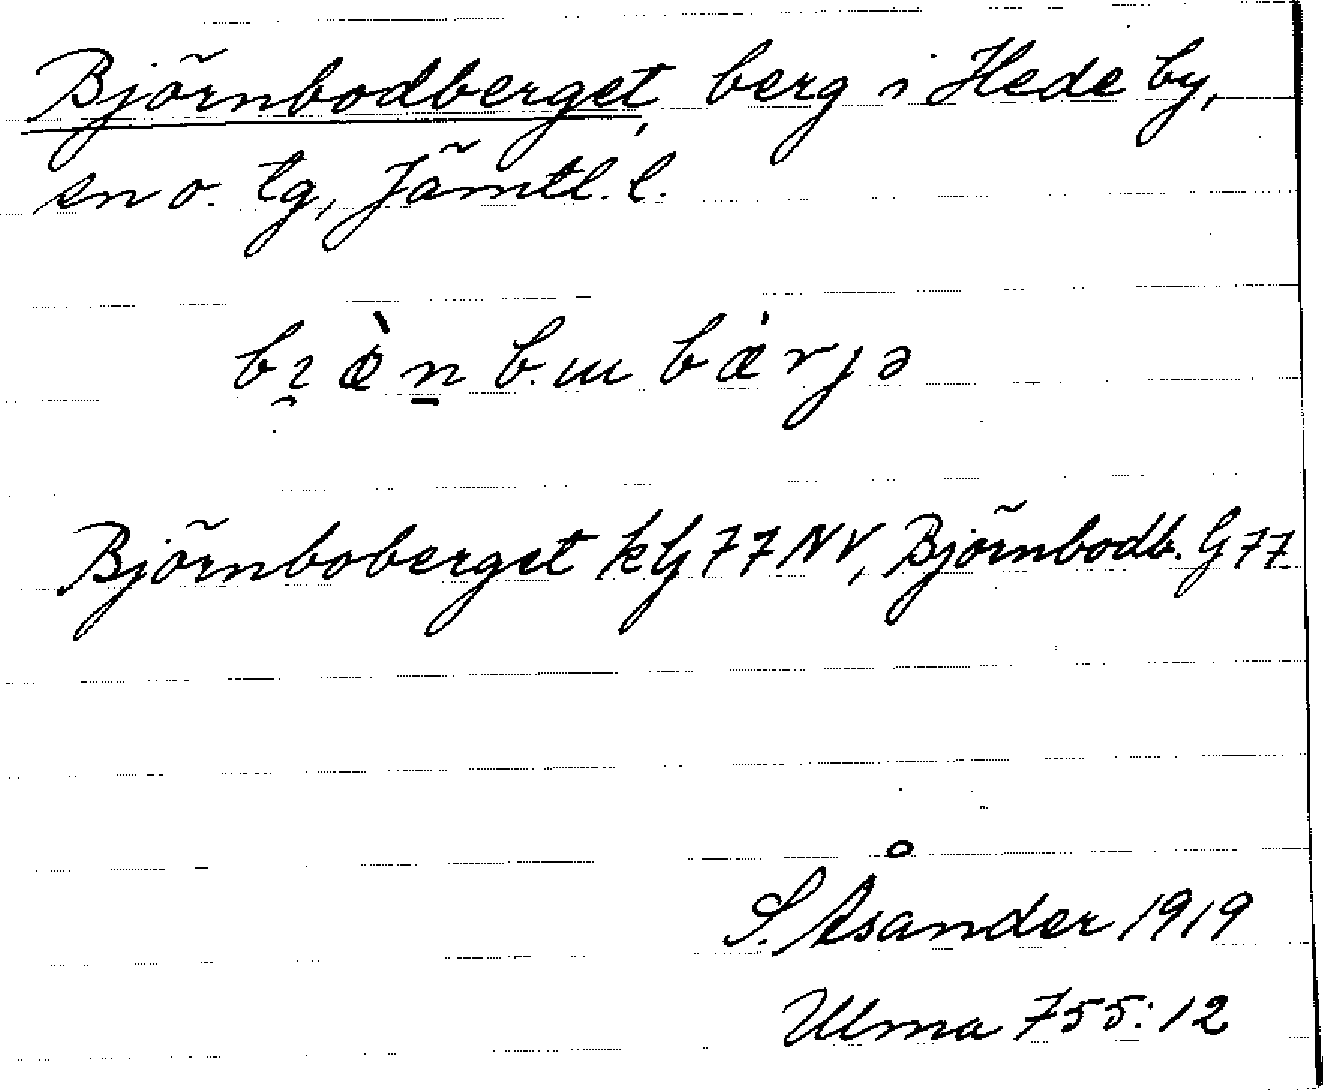 Björnbodberget, berg i Hede by,
sn o. tg, Jämtl. l.
Björnboberget kG 77 NV, Björnbodb. G 77
S. Åsander 1919
Ulma 755:12